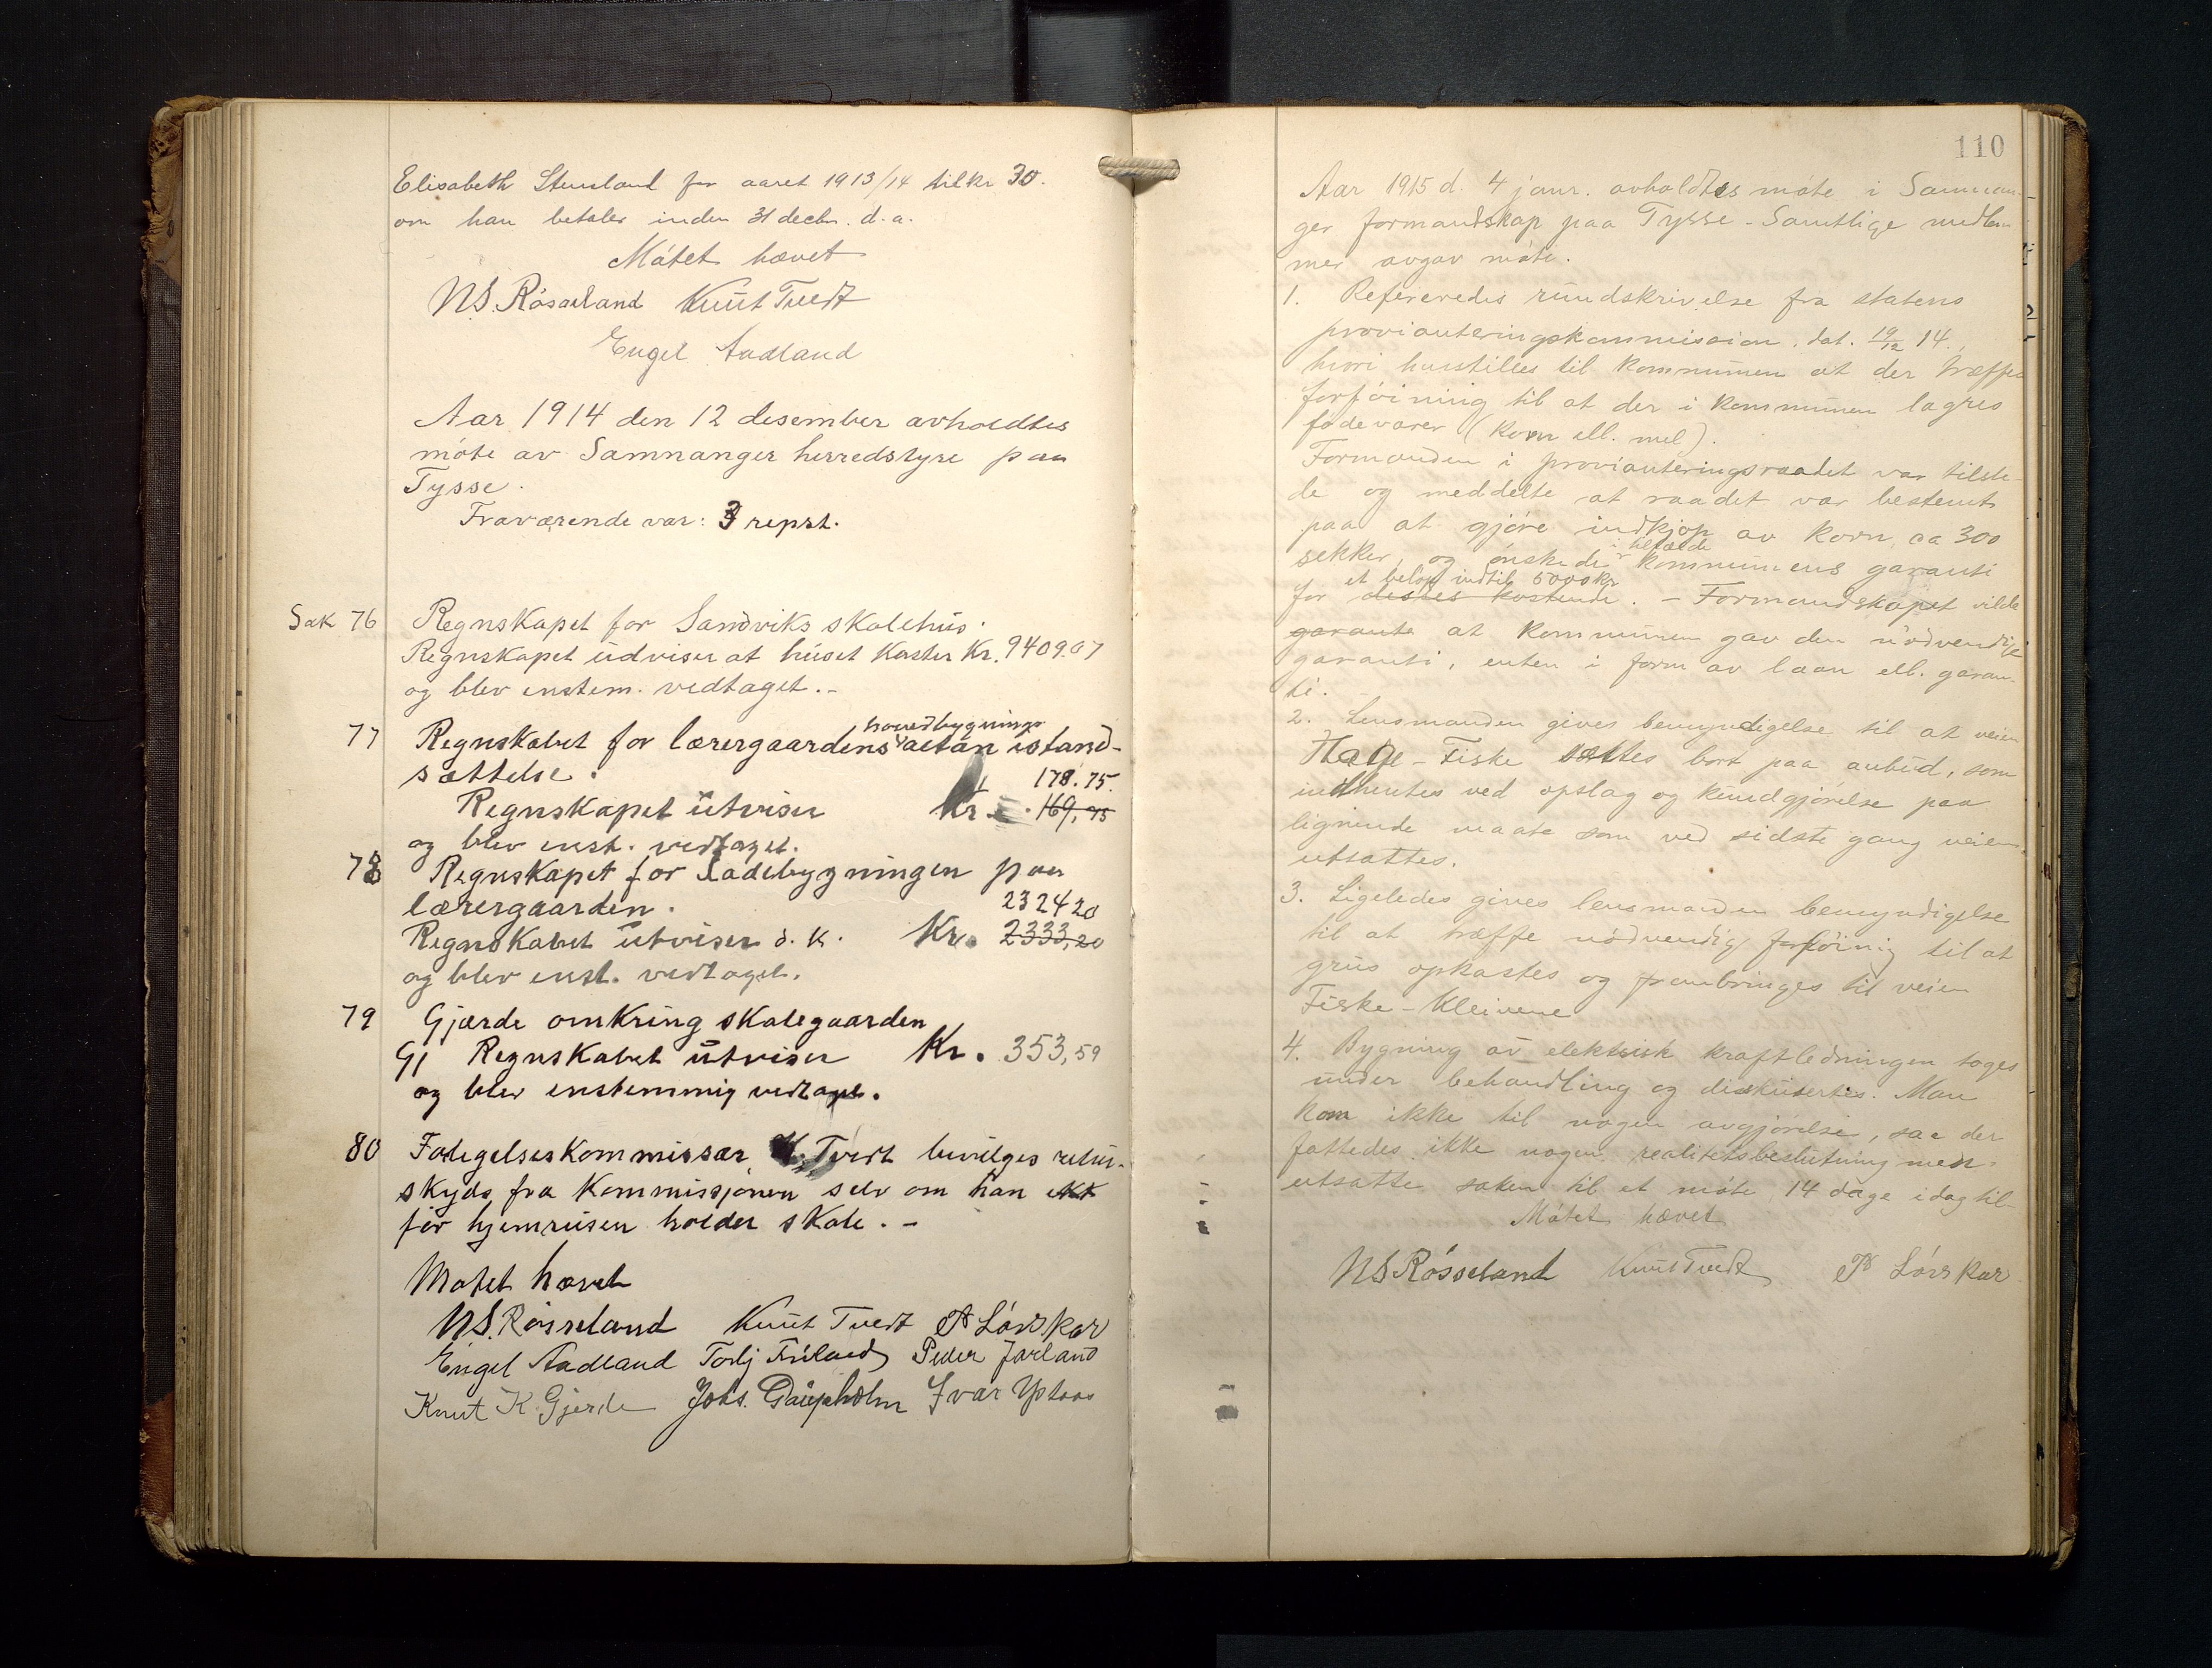 Elisabeth Stensland for aaret 1913/14 til kr 30.
om han betaler inden 31 decbr. d. a.
Mötet hævet
N.S. Röseland Knut Tvedt
Engel Aadland
Aar 1914 den 12 desember avholdtes
möte av Samnanger herredstyre paa
Tysse.
Fraværende var: 3 reprt.
Sak 76 Regnskapet for Sandviks skolehus.
Regnskapet udviser at huset koster Kr. 9409.07
og blev enstem. vedtaget.-
77 Regnskabet for lærergaardens hovedbygnings altan istand-
sættelse.
178.75.
Regnskapet utviser Kr. 169,75
og blev enst. vedtaget.
78 Regnskapet for Ladebygningen paa
lærergaarden. 232420
Regnskabet utviser d. k. Kr. 2333,20
og blev enst. vedtaget.
79 Gjærde omkring skolegaarden
Gj Regnskabet utviser Kr. 353,59
og blev enstemmig vedtaget.
80 Fatigelseskommissær K. Tvedt bevilges retur-
skyds fra Kommissjonen selv om han ikk
för hjemreisen holder skole. -
Mötet hævet
N.S. Rösseland Knut Tvedt P Lönskar
Engel Aadland Peder Jarland
Knut K. Gjerde Johs. Ivar
110
Aar 1915 d. 4 janr. avholdtes möte i Samnan-
ger formandskap paa Tysse - Samtlige medlem
mer avgav möte.
1. Refereredes rundskrivelse fra statens
provianteringskommission, dat. 19/12 14.,
hvori henstilles til kommunen at der træffes
forföining til at der i kommunen lagres
födevarer (korn ell. mel).
Formanden i provianteringsraadet var tilste-
de og meddelte at raadet var bestemt
paa at gjöre indkjöp av korn, ca 300
sekker, og önskede i tilfælde kommunens garanti
for et belöp indtil 5000 kr desses kostende. - Formandskapet vilde
garante at kommunen gav den nödvendige
garanti, enten i form av laan ell. garan-
ti.
2. Lensmanden gives bemyndigelse til at veien
Hage - Fiske sættes bort paa anbud, som
indhentes ved opslag og kundgjörelse paa
lignende maate som ved sidste gang veien
utsattes.
3. Ligeledes gives lensmanden bemyndigelse
til at træffe nödvendig forföinig til at
grus opkastes og frambringes til veien
Fiske - Kleivene
4. Bygning av elektrisk kraftledningen toges
under behandling og diskusertes. Man
kom ikke til nogen avgjörelse, saa der
fattedes ikke nogen realitetsbeslutning men
utsatte saken til et möte 14 dage idag til
Mötet hævet
N S Rösseland Knut Tvedt P Lönskar